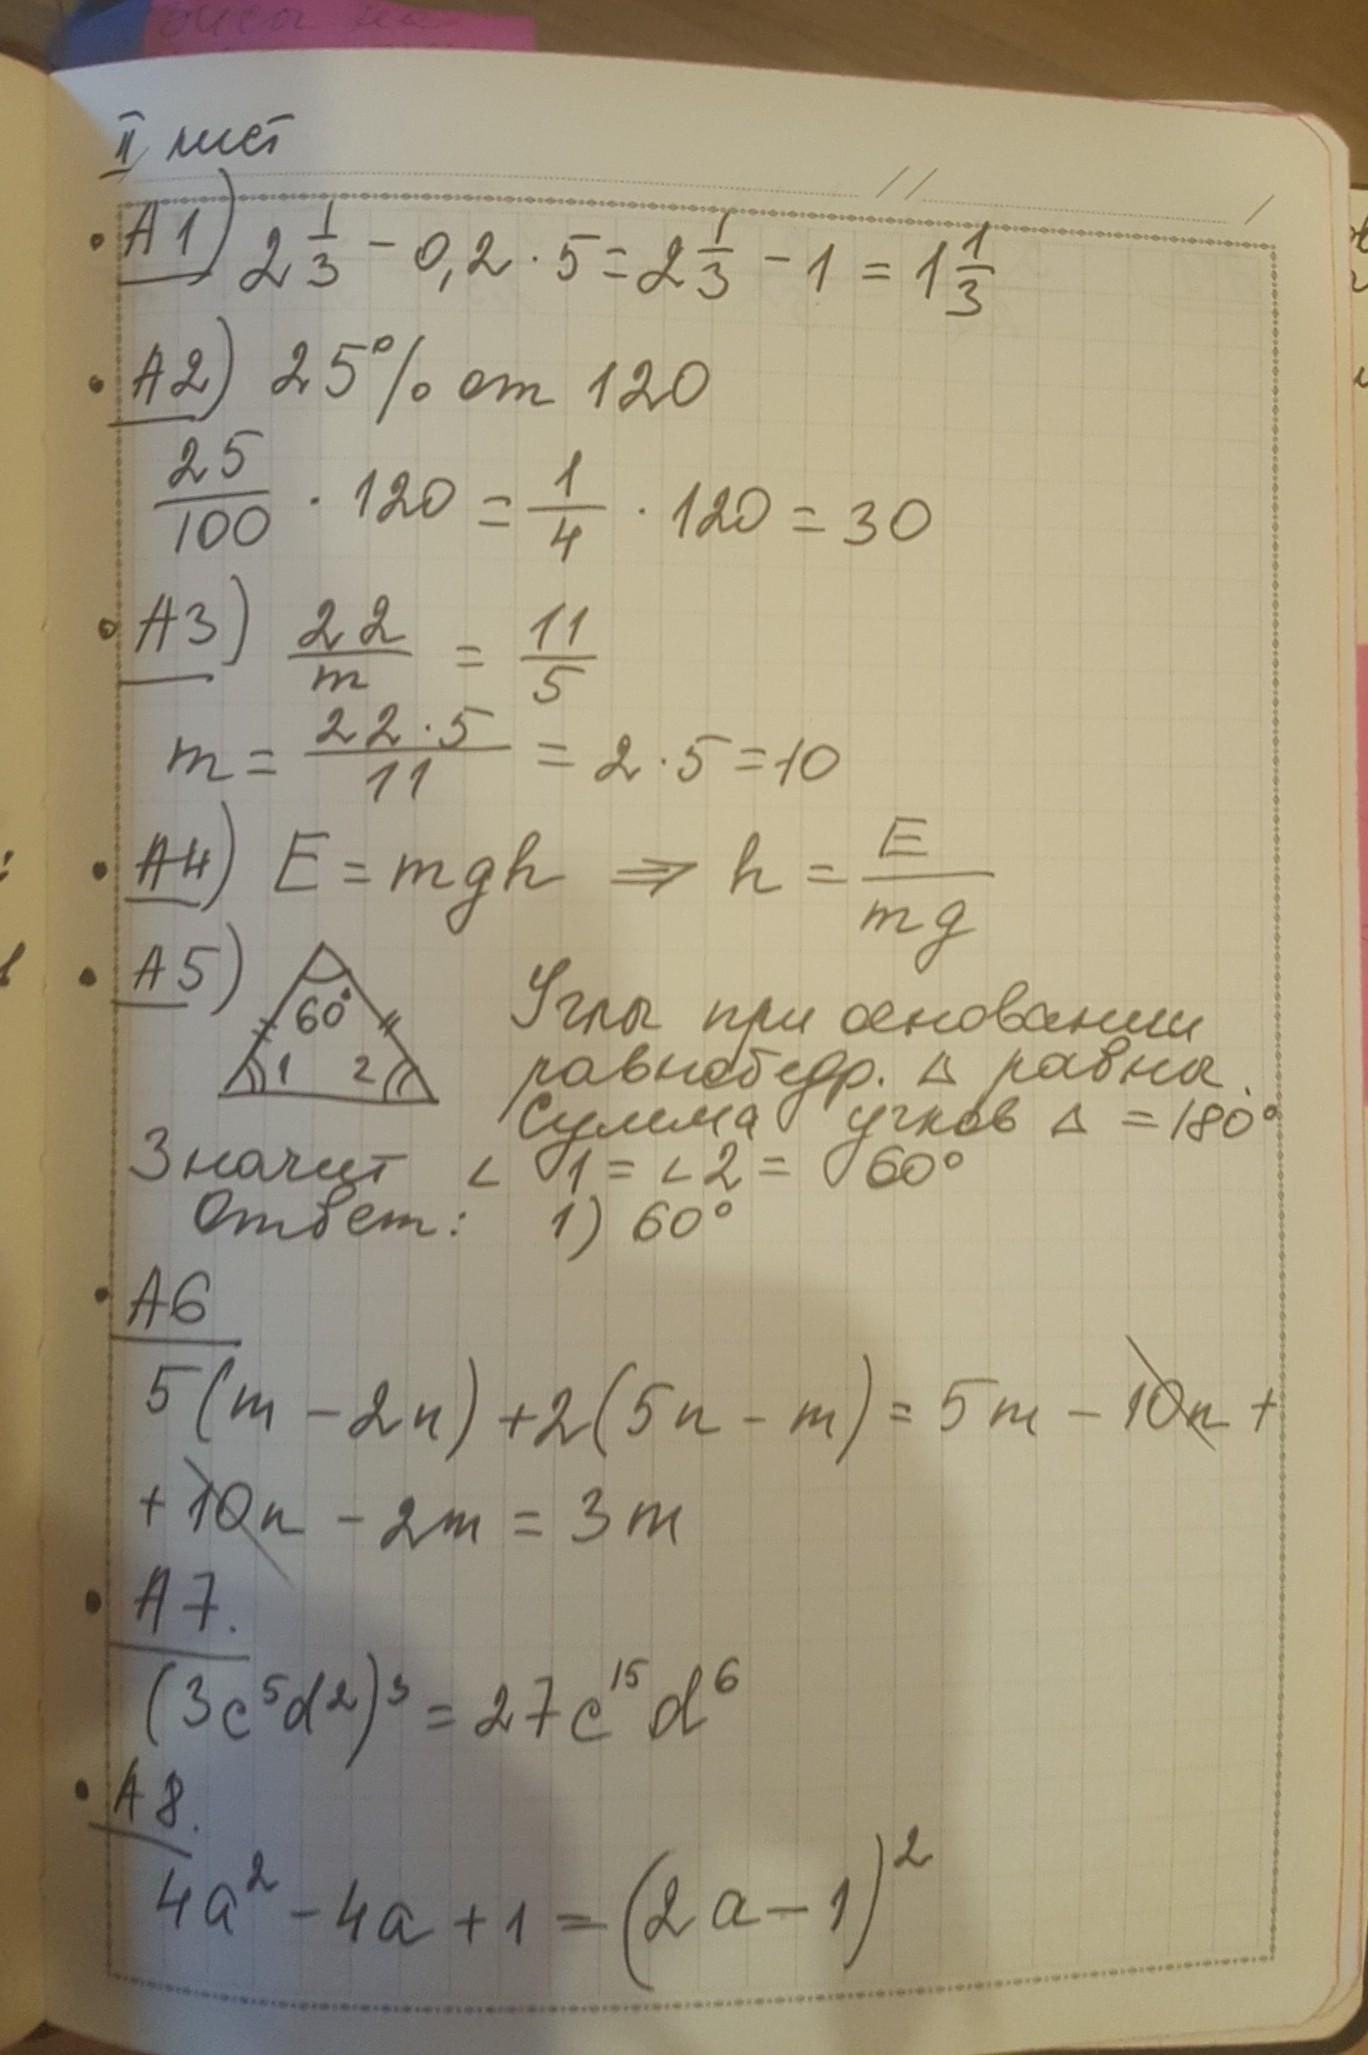 II лист
A1) 2 1/3 - 0,2 · 5 = 2 1/3 - 1 = 1 1/3
A2) 25% от 120
25/100 · 120 = 1/4 · 120 = 30
A3) 22/m = 11/5
m = 22·5/11 = 2·5 = 10
A4) E = mgh ⇒ h = E/mg
A5) 60° 1 2
Углы при основании
равнобедр. Δ равны.
Сумма углов Δ = 180°
Значит ∠1 = ∠2 = 60°
Ответ: 1) 60°
A6
5(m - 2n) + 2(5n - m) = 5m - 10n +
+ 10n - 2m = 3m
A7.
(3c⁵d²)³ = 27c¹⁵d⁶
A8.
4a² - 4a + 1 = (2a - 1)²